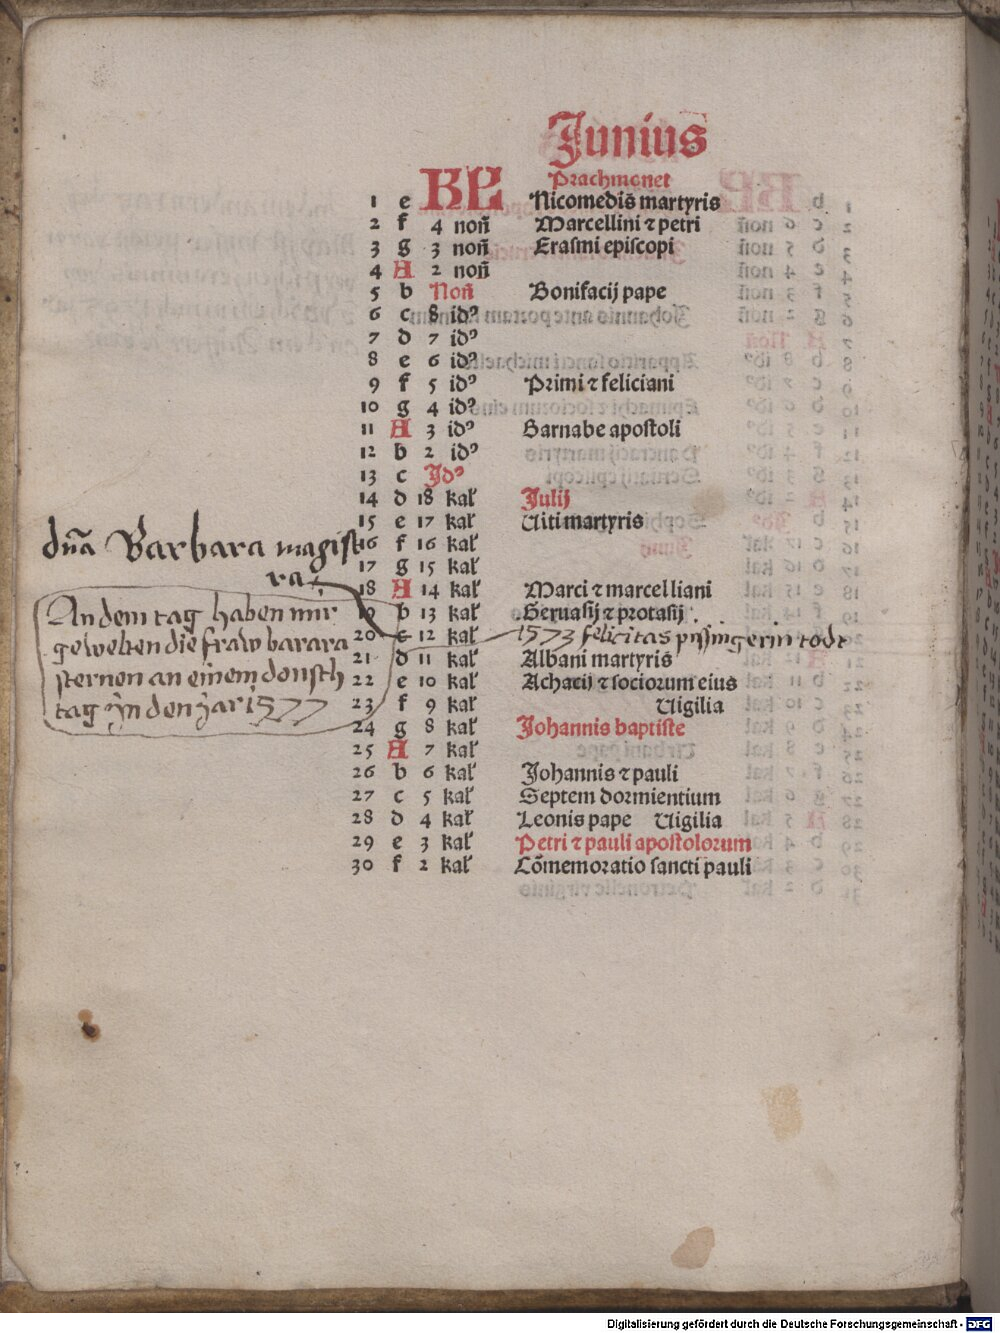 Junius
Prachmonet
KL
1 e Nicomedis̄ martyris
2 f 4 noñ Marcellini ⁊ petri
3 g 3 noñ Erasmi episcopi
4 A 2 noñ
5 b Noñ Bonifacij pape
6 c 8 idꝰ
7 d 7 idꝰ
8 e 6 idꝰ
9 f 5 idꝰ Primi ⁊ feliciani
10 g 4 idꝰ
11 A 3 idꝰ Barnabe apostoli
12 b 2 idꝰ
13 c Jdꝰ
14 d 18 kal' Julij
15 e 17 kal' Uiti martyris
16 f 16 kal'
17 g 15 kal'
18 A 14 kal' Marci ⁊ marcelliani
19 b 13 kal' Geruasij ⁊ protasij
20 c 12 kal' 1573 felicitas pissingerin todt
21 d 11 kal' Albani martyris
22 e 10 kal' Achacij ⁊ sociorum eius
23 f 9 kal' Uigilia
24 g 8 kal' Johannis baptiste
25 A 7 kal'
26 b 6 kal' Johannis ⁊ pauli
27 c 5 kal' Septem dormientium
28 d 4 kal' Leonis pape Uigilia
29 e 3 kal' Petri ⁊ pauli apostolorum
30 f 2 kal' Cōmemoratio sancti pauli
dña Barbara magist
ra
An dem tag haben mir
gewelten die fraw barara
sternen an einem donsth
tag ÿn den ÿar 1577
Digitalisierung gefördert durch die Deutsche Forschungsgemeinschaft - DFG